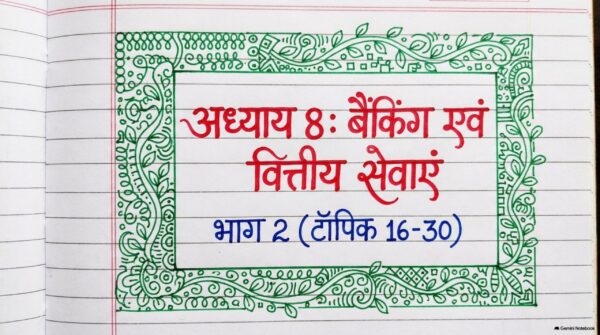 अध्याय 8: बैंकिंग एवं
वित्तीय सेवाएं
भाग 2 (टॉपिक 16-30)
Gemini Notebook